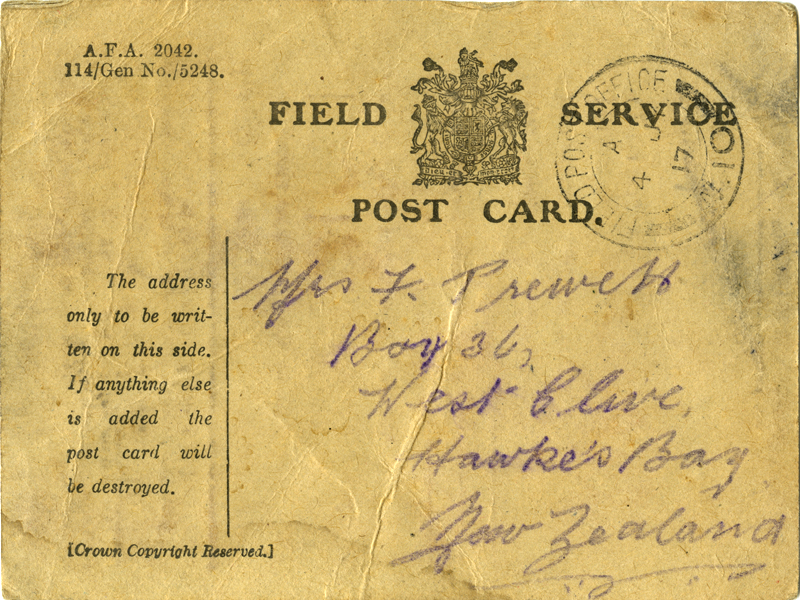 A.F.A. 2042.
114/Gen No./5248.
FIELD SERVICE
POST CARD.
FIELD POST OFFICE
A
4 17
The address
only to be writ-
ten on this side.
If anything else
is added the
post card will
be destroyed.
[Crown Copyright Reserved.]
Mrs F. Prewett
Box 36,
West Clive,
Hawke's Bay
New Zealand